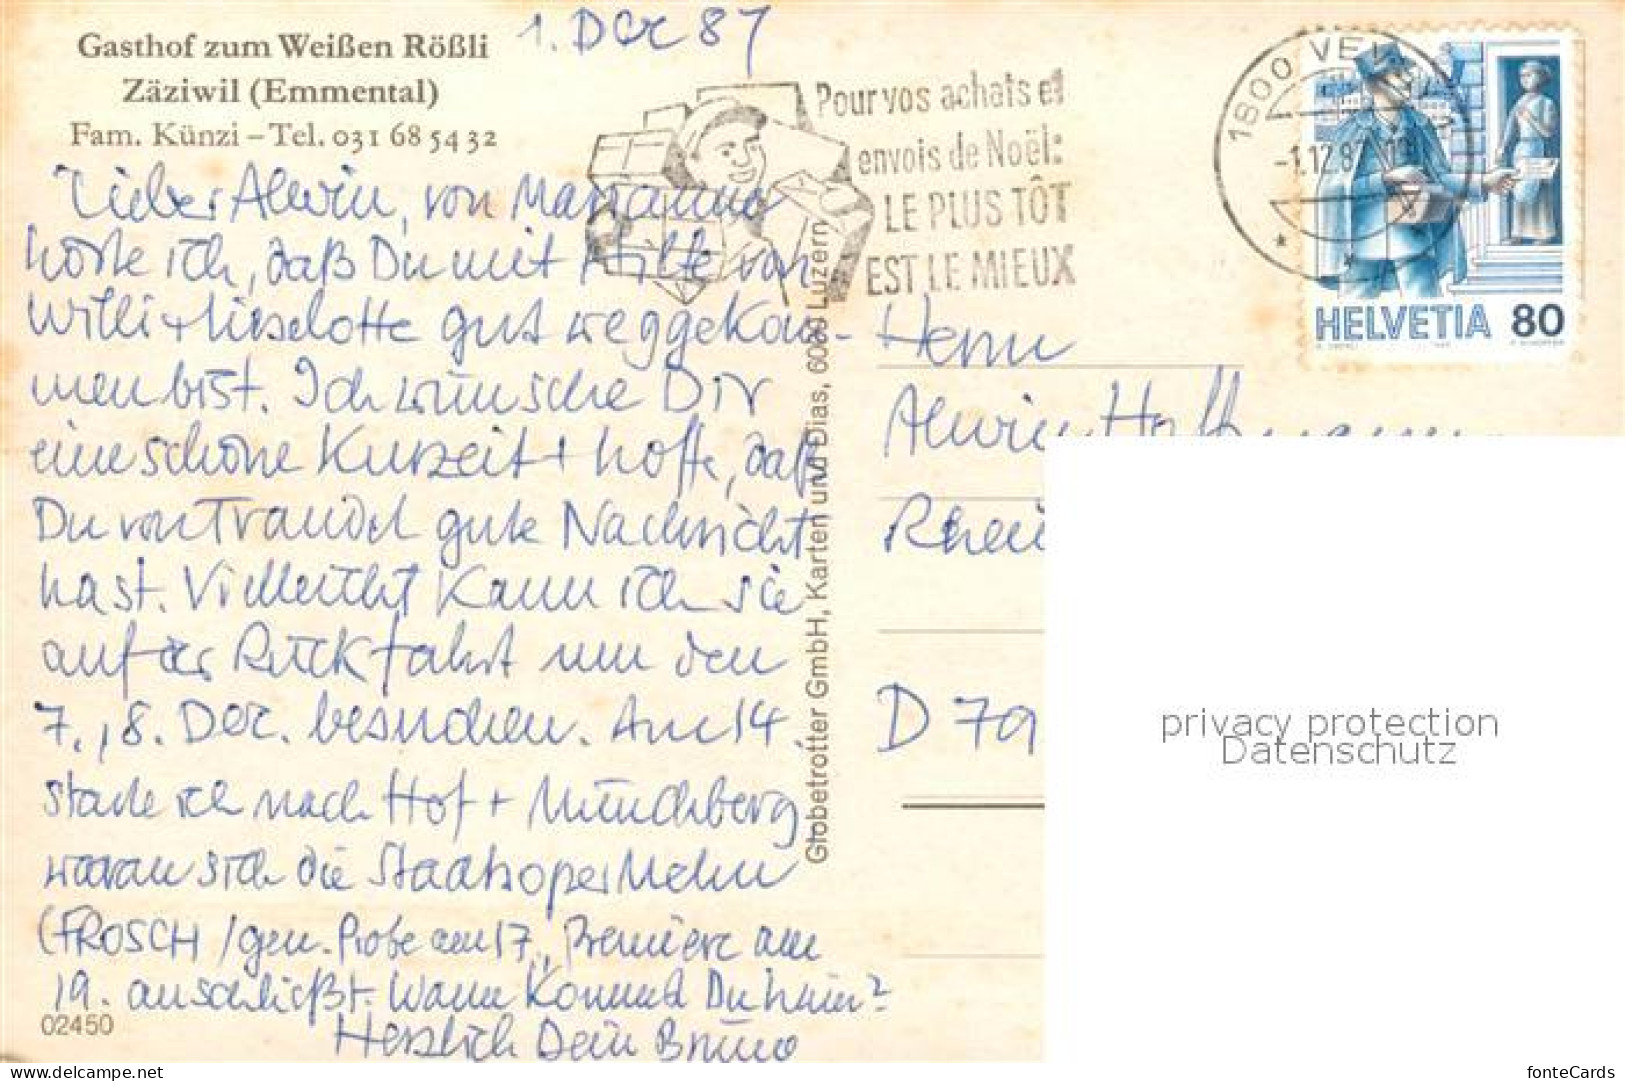 Gasthof zum Weißen Rößli
Zäziwil (Emmental)
Fam. Künzi – Tel. 031 68 54 32
1. Dez 87
Pour vos achats et
envois de Noël:
LE PLUS TÔT
EST LE MIEUX
1800 VEV
-1.12.87
HELVETIA 80
Lieber Alwin, von Marianne
hörte ich, daß Du mit Hilfe von
Willi + Lieselotte gut weggekom-
men bist. Ich wünsche Dir
eine schöne Kurzeit + hoffe, daß
Du von Traudel gute Nachricht
hast. Vielleicht kann ich sie
auf der Rückfahrt um den
7., 8. Dez. besuchen. Am 14.
starte ich nach Hof + Münchberg
woran sich die Staatsoper Wien
(FROSCH / gen. Probe am 17., Premiere am
19. anschließt. Wann kommst Du heim?
Herzlich Dein Bruno
02450
Globetrotter GmbH, Karten und Dias, Luzern
Herrn
Alwin Hoffmann
Rhei
D 79
privacy protection
Datenschutz
www.delcampe.net
fonteCards